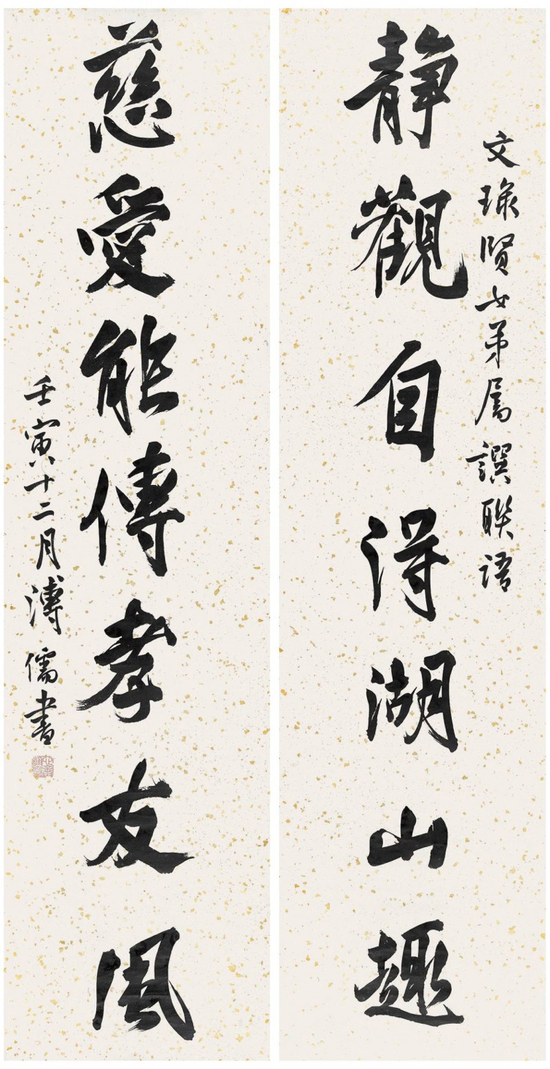 文賢女弟屬譔聯語
靜觀自得湖山趣
慈愛能傳孝友風
壬寅十二月溥儒書